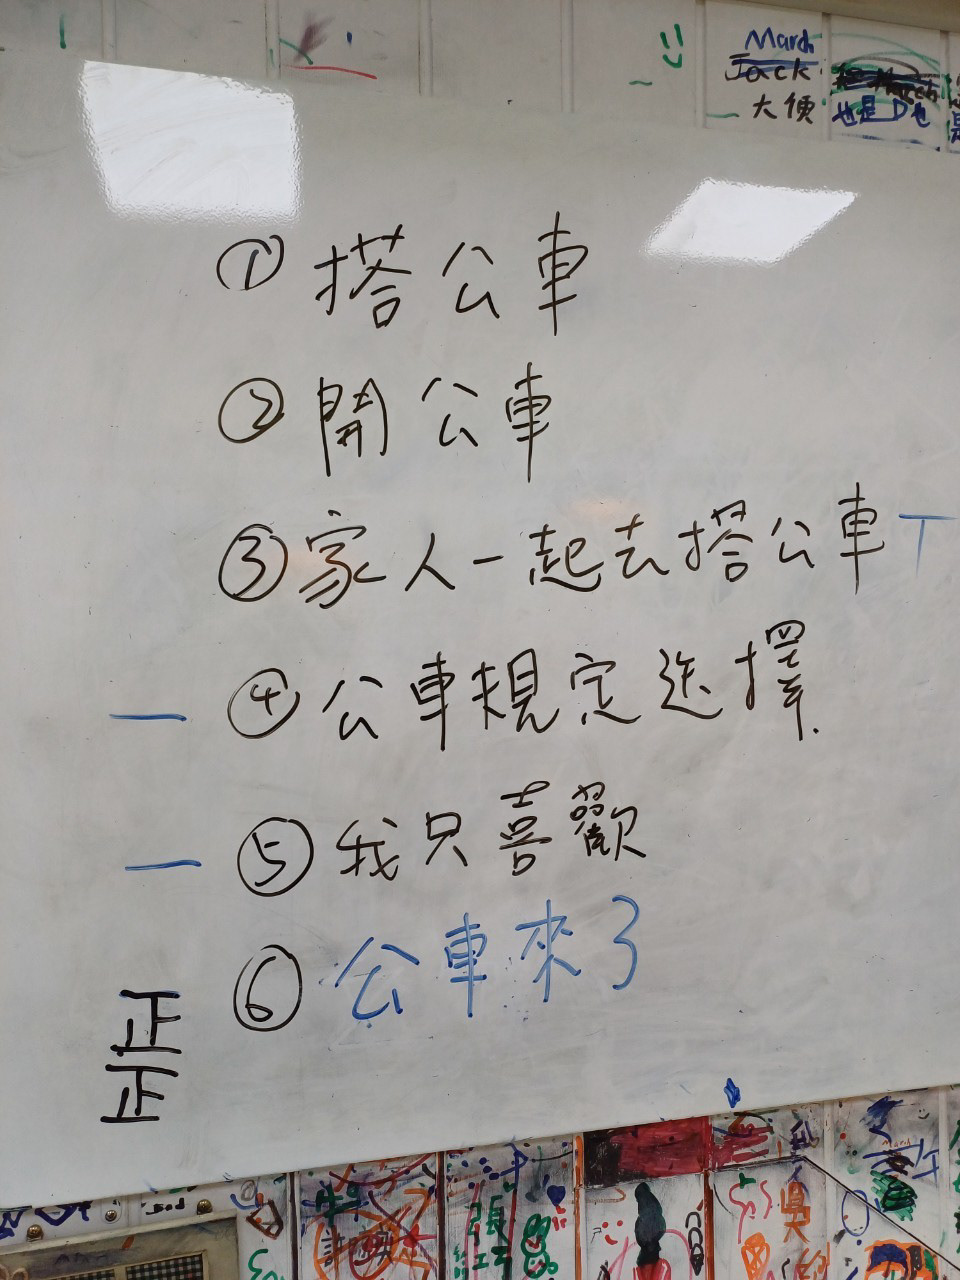 March
Jack
大便
也是D也
① 搭公車
② 開公車
③ 家人一起去搭公車 T
一 ④ 公車規定选擇.
一 ⑤ 我只喜歡
⑥ 公車來了
正
正